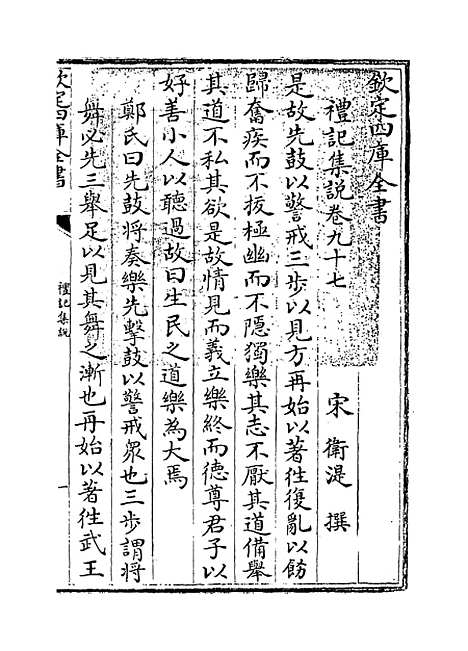 欽定四庫全書
禮記集說卷九十七
宋 衛湜 撰
是故先鼓以警戒三步以見方再始以著往復亂以飭
歸奮疾而不拔極幽而不隱獨樂其志不厭其道備舉
其道不私其欲是故情見而義立樂終而德尊君子以
好善小人以聽過故曰生民之道樂為大焉
鄭氏曰先鼓將奏樂先擊鼓以警戒衆也三步謂將
舞必先三舉足以見其舞之漸也再始以著往武王
欽定四庫全書
禮記集説
一